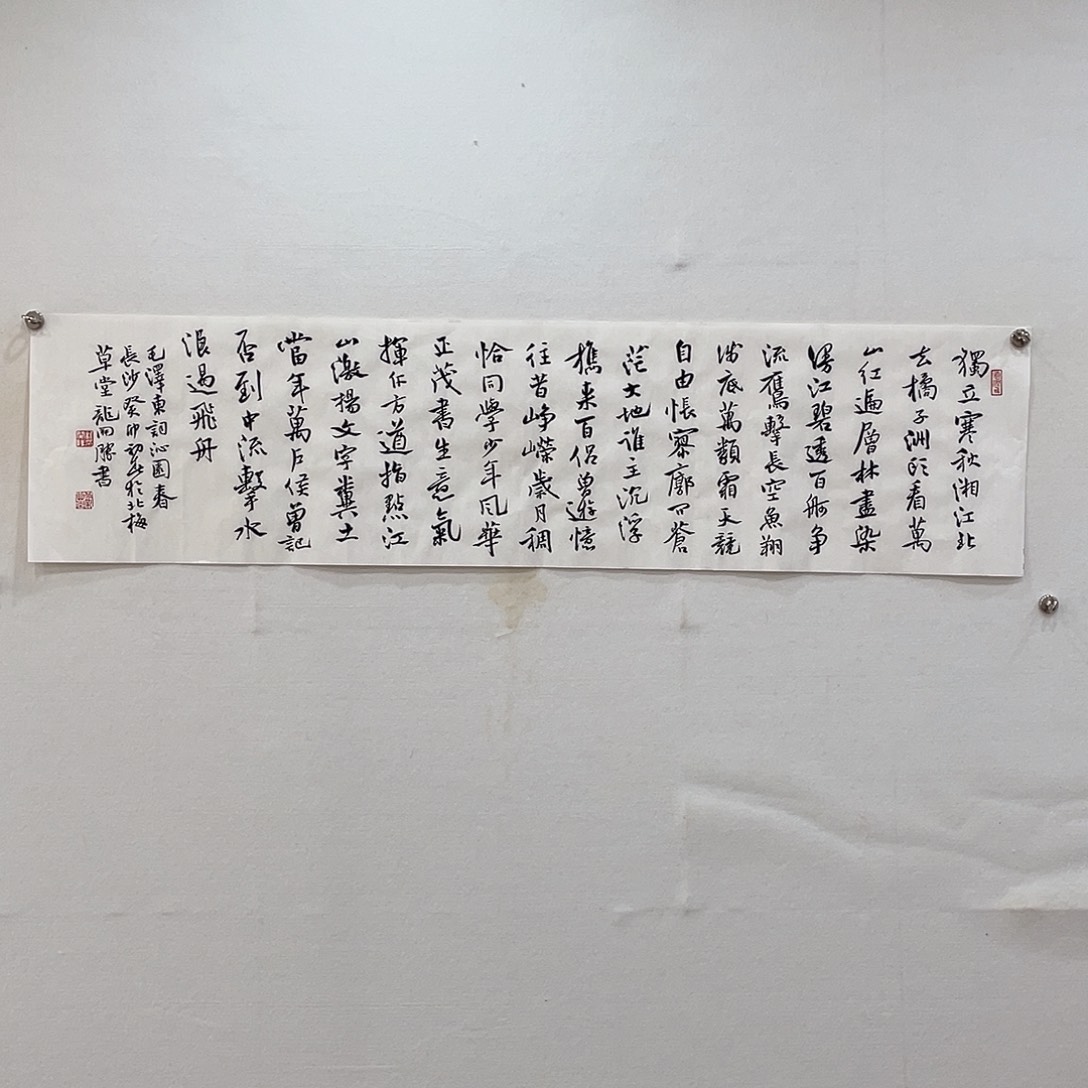 獨立寒秋湘江北
去橘子洲頭看萬
山紅遍層林盡染
漫江碧透百舸争
流鷹擊長空魚翔
淺底萬類霜天競
自由悵寥廓问蒼
茫大地谁主沉浮
携来百侣曾遊憶
往昔峥嶸歲月稠
恰同學少年风華
正茂書生意氣
揮斥方遒指點江
山激揚文字糞土
當年萬户侯曾記
否到中流擊水
浪遏飛舟
毛澤東詞沁園春
長沙癸卯初於北梅
草堂龍书